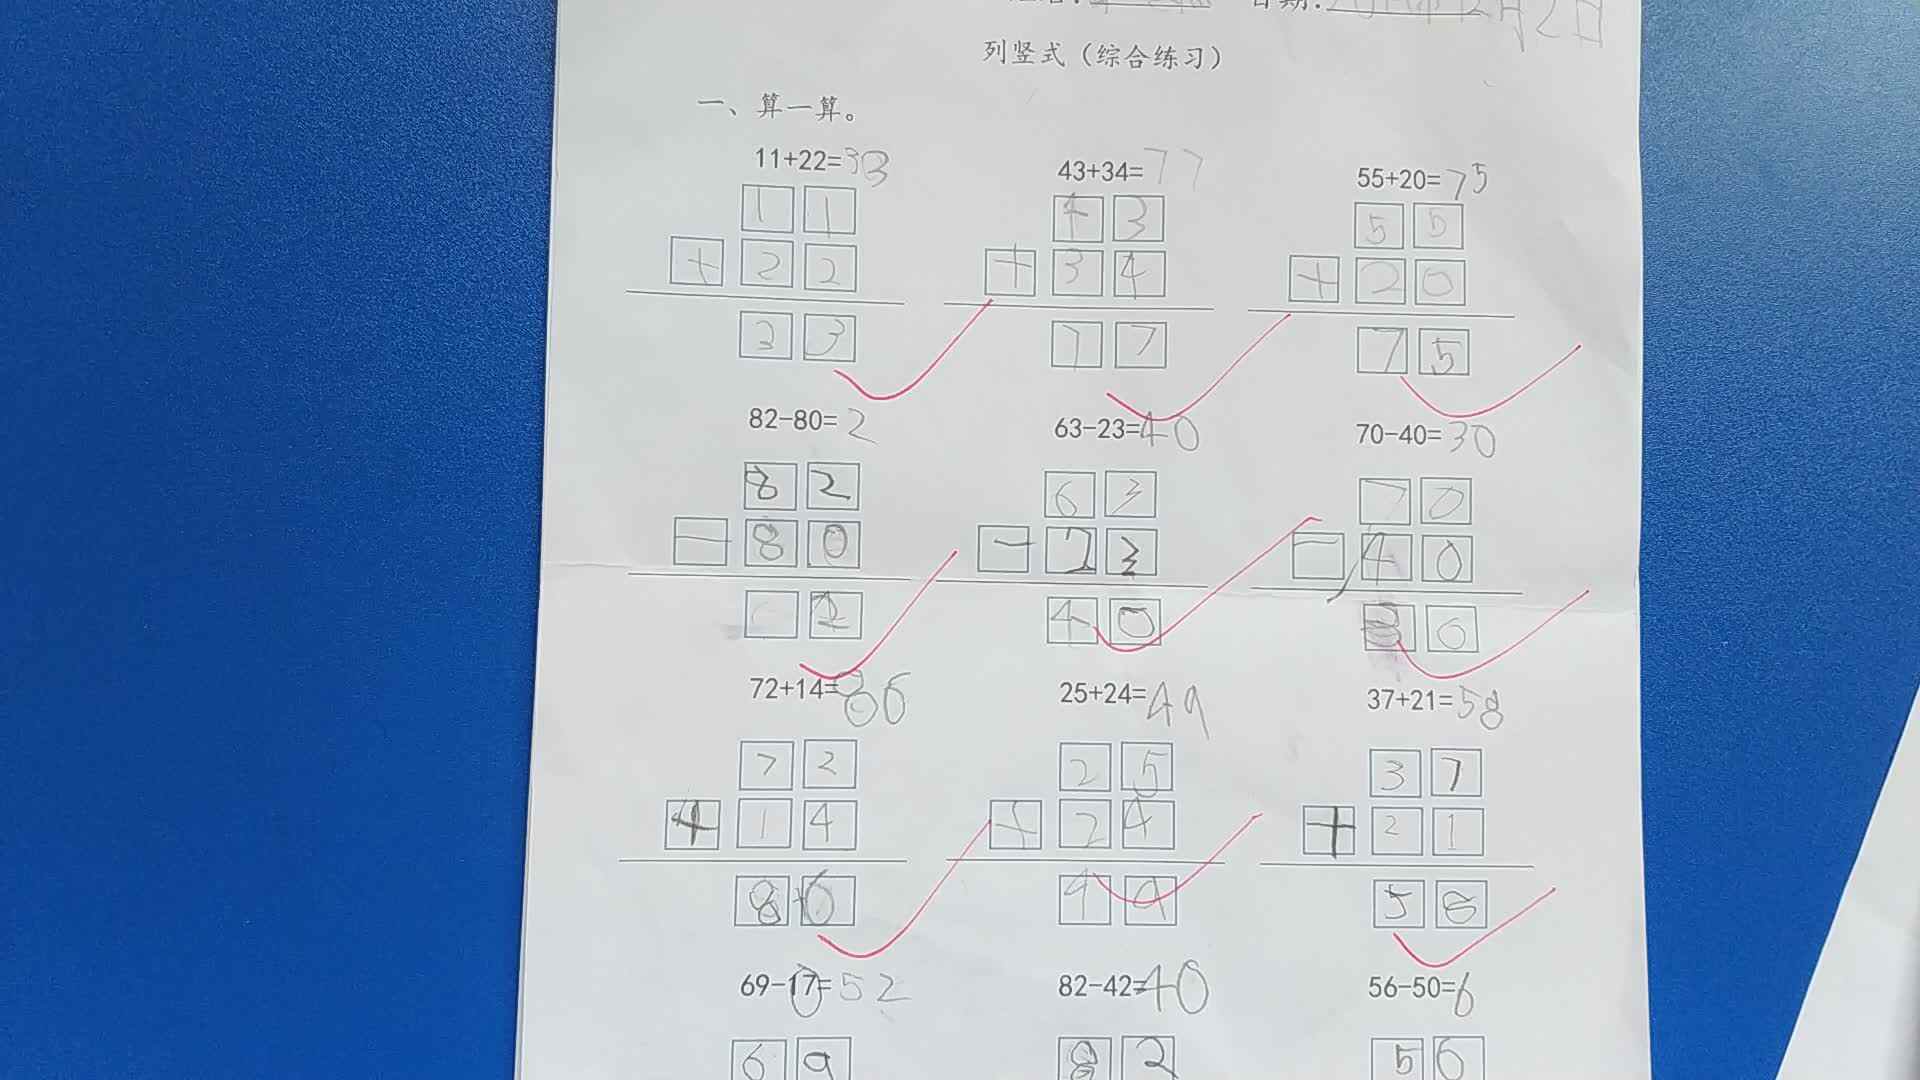 列竖式（综合练习）
一、算一算。
11+22=33 43+34=77 55+20=75
1 1 4 3 5 5
+ 2 2 + 3 4 + 2 0
3 3 7 7 7 5
82-80=2 63-23=40 70-40=30
8 2 6 3 7 0
- 8 0 - 2 3 - 4 0
2 4 0 3 0
72+14=86 25+24=49 37+21=58
7 2 2 5 3 7
+ 1 4 + 2 4 + 2 1
8 6 4 9 5 8
69-17=52 82-42=40 56-50=6
6 9 8 2 5 6